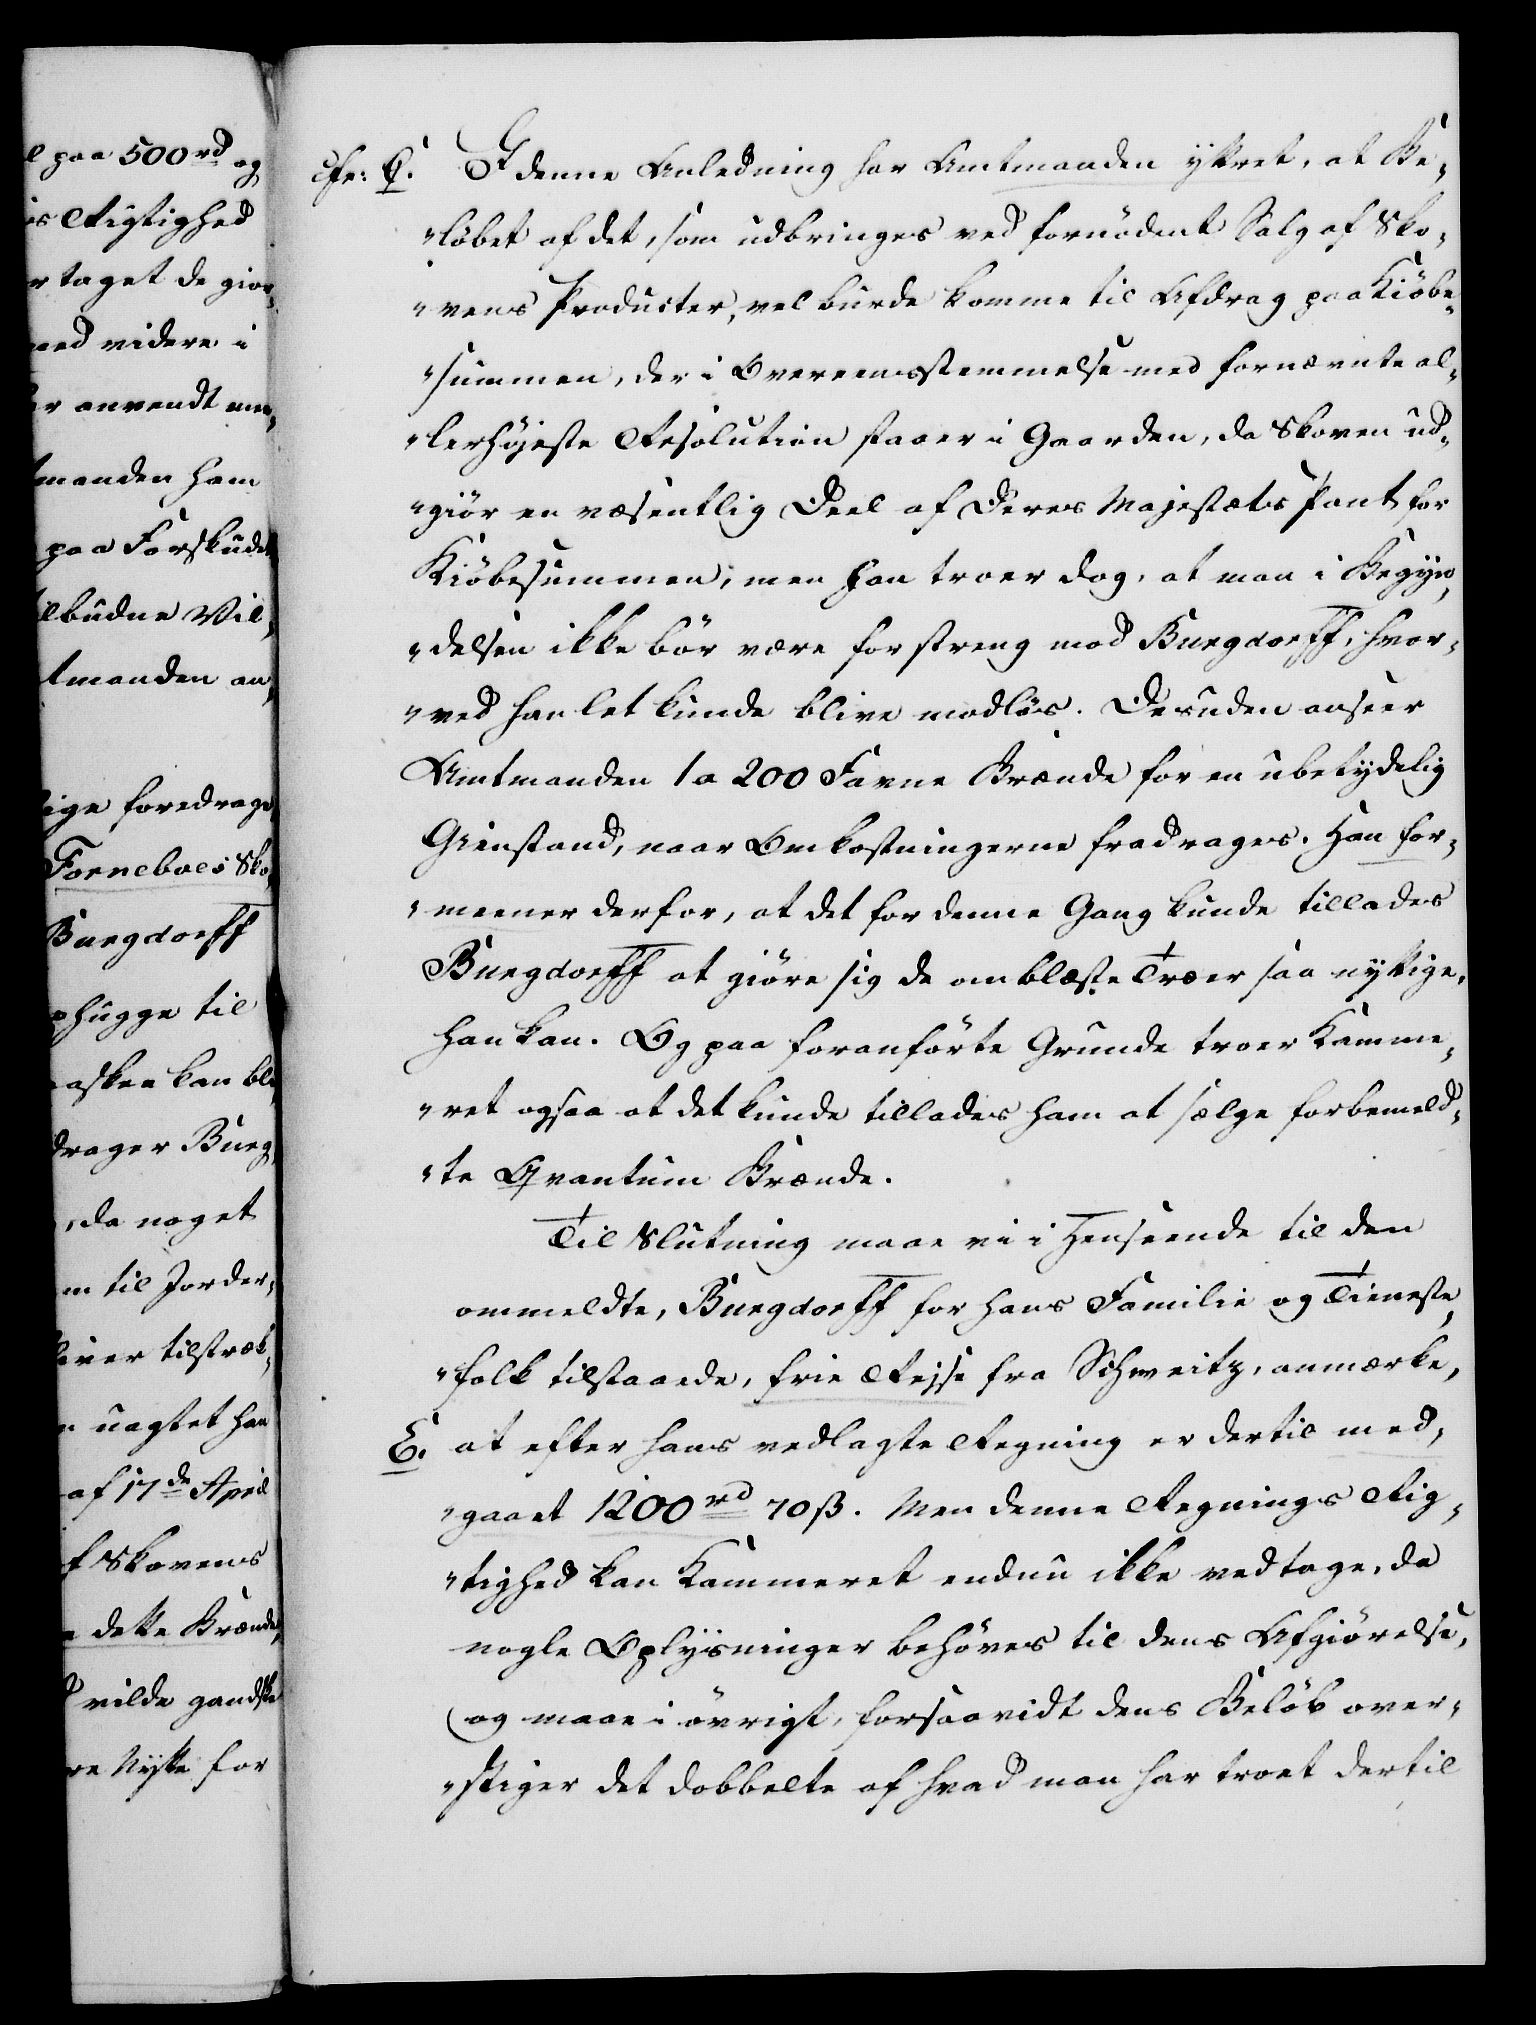 l paa 500 rd og
es Rigtighed
r taget de gior„
med videre i
er anvendt un„
manden ham
paa Forskudet
lbudne Vil„
tmanden an„
ige foredrage
Forneboes Sko„
Burgdorff
phugge til
asken kan bli„
drager Burg„
, da noget
m til Jorder„
liver tilstræk„
n uagtet han
af 17de April
f Skovens
dette Brænde„
vilde gandske
re Nytte for
cfr: C. I denne Anledning har Amtmanden yttret, at Be„
„løbet af det, som udbringes ved fornødent Salg af Sko„
„vens Producter, vel burde komme til Afdrag paa Kiøbe„
„summen, der i Overeensstemmelse med fornævnte al„
„lerhøjeste Resolution staaer i Gaarden, da Skoven ud„
„giør en væsentlig Deel af Deres Majestæts Pant for
Kiøbesummen; men han troer dog, at man i Begyn„
„delsen ikke bør være for streng mod Burgdorff, hvor„
„ved han let kunde blive modløs. Desuden anseer
Amtmanden 1 a 200 Favne Brænde for en ubetydelig
Gienstand, naar Omkostningerne fradrages. Han for„
„meener derfor, at det for denne Gang kunde tillades
Burgdorff at giøre sig de omblæste Træer saa nyttige,
han kan. Og paa foranførte Grunde troer Kamme„
„ret ogsaa at det kunde tillades ham at sælge forbemeld„
„te Qvantum Brænde.
Til Slutning maae vi i Henseende til den
ommeldte, Burgdorff for hans Familie og Tieneste„
„folk tilstaaede, frie Rejse fra Schweitz, anmærke,
E. at efter hans vedlagte Regning er dertil med„
„gaaet 1200 rd 70 ß. Men denne Regnings Rig„
„tighed kan Kammeret endnu ikke vedtage, da
nogle Oplysninger behøves til dens Afgiørelse,
og maae i øvrigt, forsaavidt dens Beløb over„
„stiger det dobbelte af hvad man har troet dertil